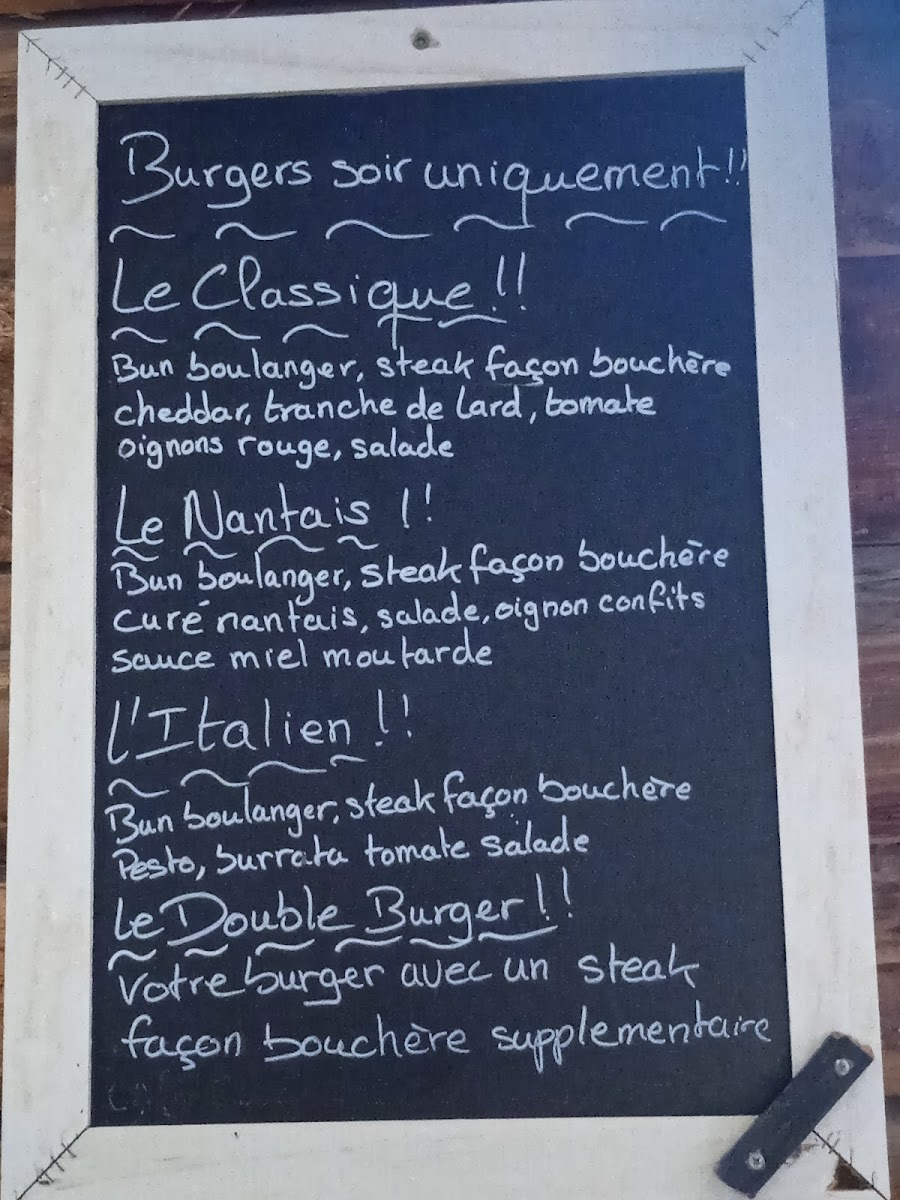 Burgers soir uniquement!!
Le Classique!!
Bun boulanger, steak façon bouchère
cheddar, tranche de lard, tomate
oignons rouge, salade
Le Nantais !!
Bun boulanger, steak façon bouchère
curé nantais, salade, oignon confits
sauce miel moutarde
l'Italien !!
Bun boulanger, steak façon bouchère
Pesto, burrata tomate salade
Le Double Burger!!
Votre burger avec un steak
façon bouchère supplementaire